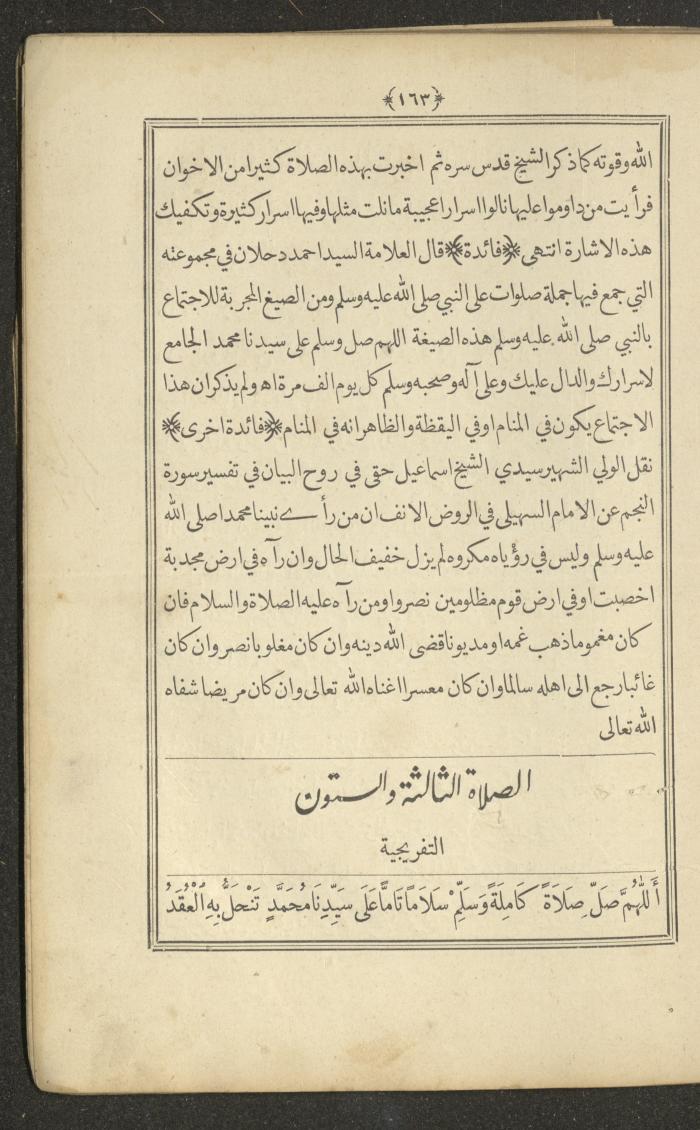 ﴿١٦٣﴾
الله وقوته كما ذكر الشيخ قدس سره ثم اخبرت بهذه الصلاة كثيرا من الاخوان
فرأيت من داوموا عليها نالوا اسرارا عجيبة ما نلت مثلها وفيها اسرار كثيرة وتكفيك
هذه الاشارة انتهى ﴿فائدة﴾ قال العلامة السيد احمد دحلان في مجموعته
التي جمع فيها جملة صلوات على النبي صلى الله عليه وسلم ومن الصيغ المجربة للاجتماع
بالنبي صلى الله عليه وسلم هذه الصيغة اللهم صل وسلم على سيدنا محمد الجامع
لاسرارك والدال عليك وعلى آله وصحبه وسلم كل يوم الف مرة اه ولم يذكر ان هذا
الاجتماع يكون في المنام او في اليقظة والظاهر انه في المنام ﴿فائدة اخرى﴾
نقل الولي الشهير سيدي الشيخ اسماعيل حقي في روح البيان في تفسير سورة
النجم عن الامام السهيلي في الروض الانف ان من رأى نبينا محمدا صلى الله
عليه وسلم وليس في رؤياه مكروه لم يزل خفيف الحال وان رآه في ارض مجدبة
اخصبت او في ارض قوم مظلومين نصروا ومن رآه عليه الصلاة والسلام فان
كان مغموما ذهب غمه او مديونا قضى الله دينه وان كان مغلوبا نصر وان كان
غائبا رجع الى اهله سالما وان كان معسرا اغناه الله تعالى وان كان مريضا شفاه
الله تعالى
الصلاة الثالثة والستون
التفريجية
أَللّٰهُمَّ صَلِّ صَلَاةً كَامِلَةً وَسَلِّمْ سَلَامًا تَامًّا عَلَى سَيِّدِنَا مُحَمَّدٍ تَنْحَلُّ بِهِ الْعُقَدُ